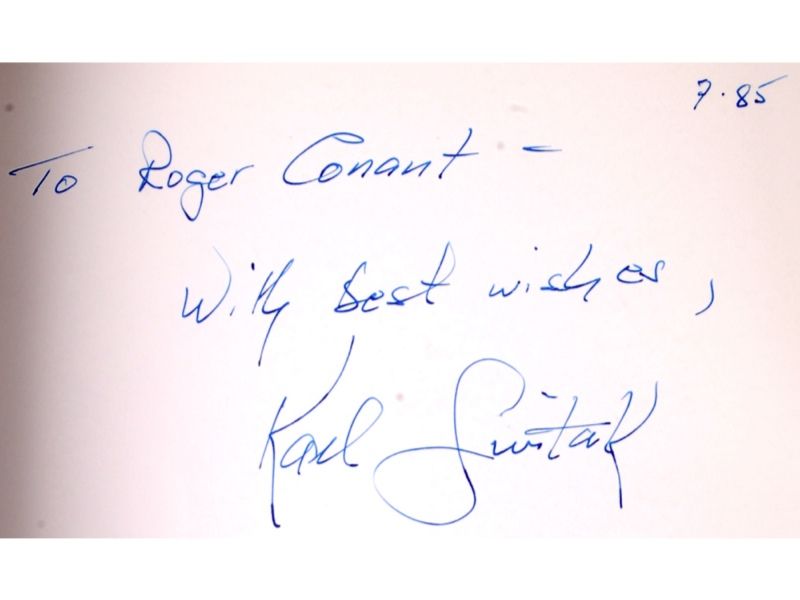 7.85
To Roger Conant -
With best wishes,
Karl Switak